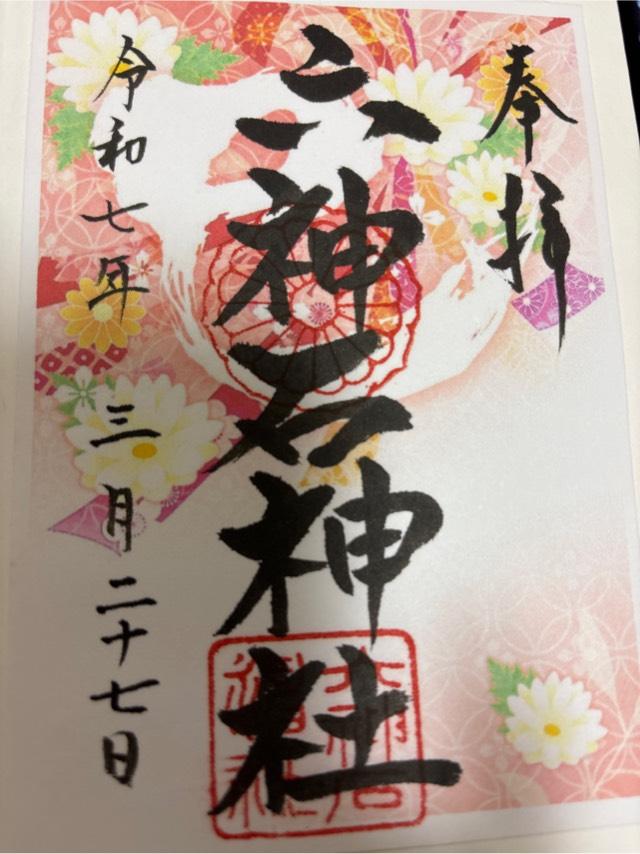 奉拝
六神石神社
令和七年 三月二十七日